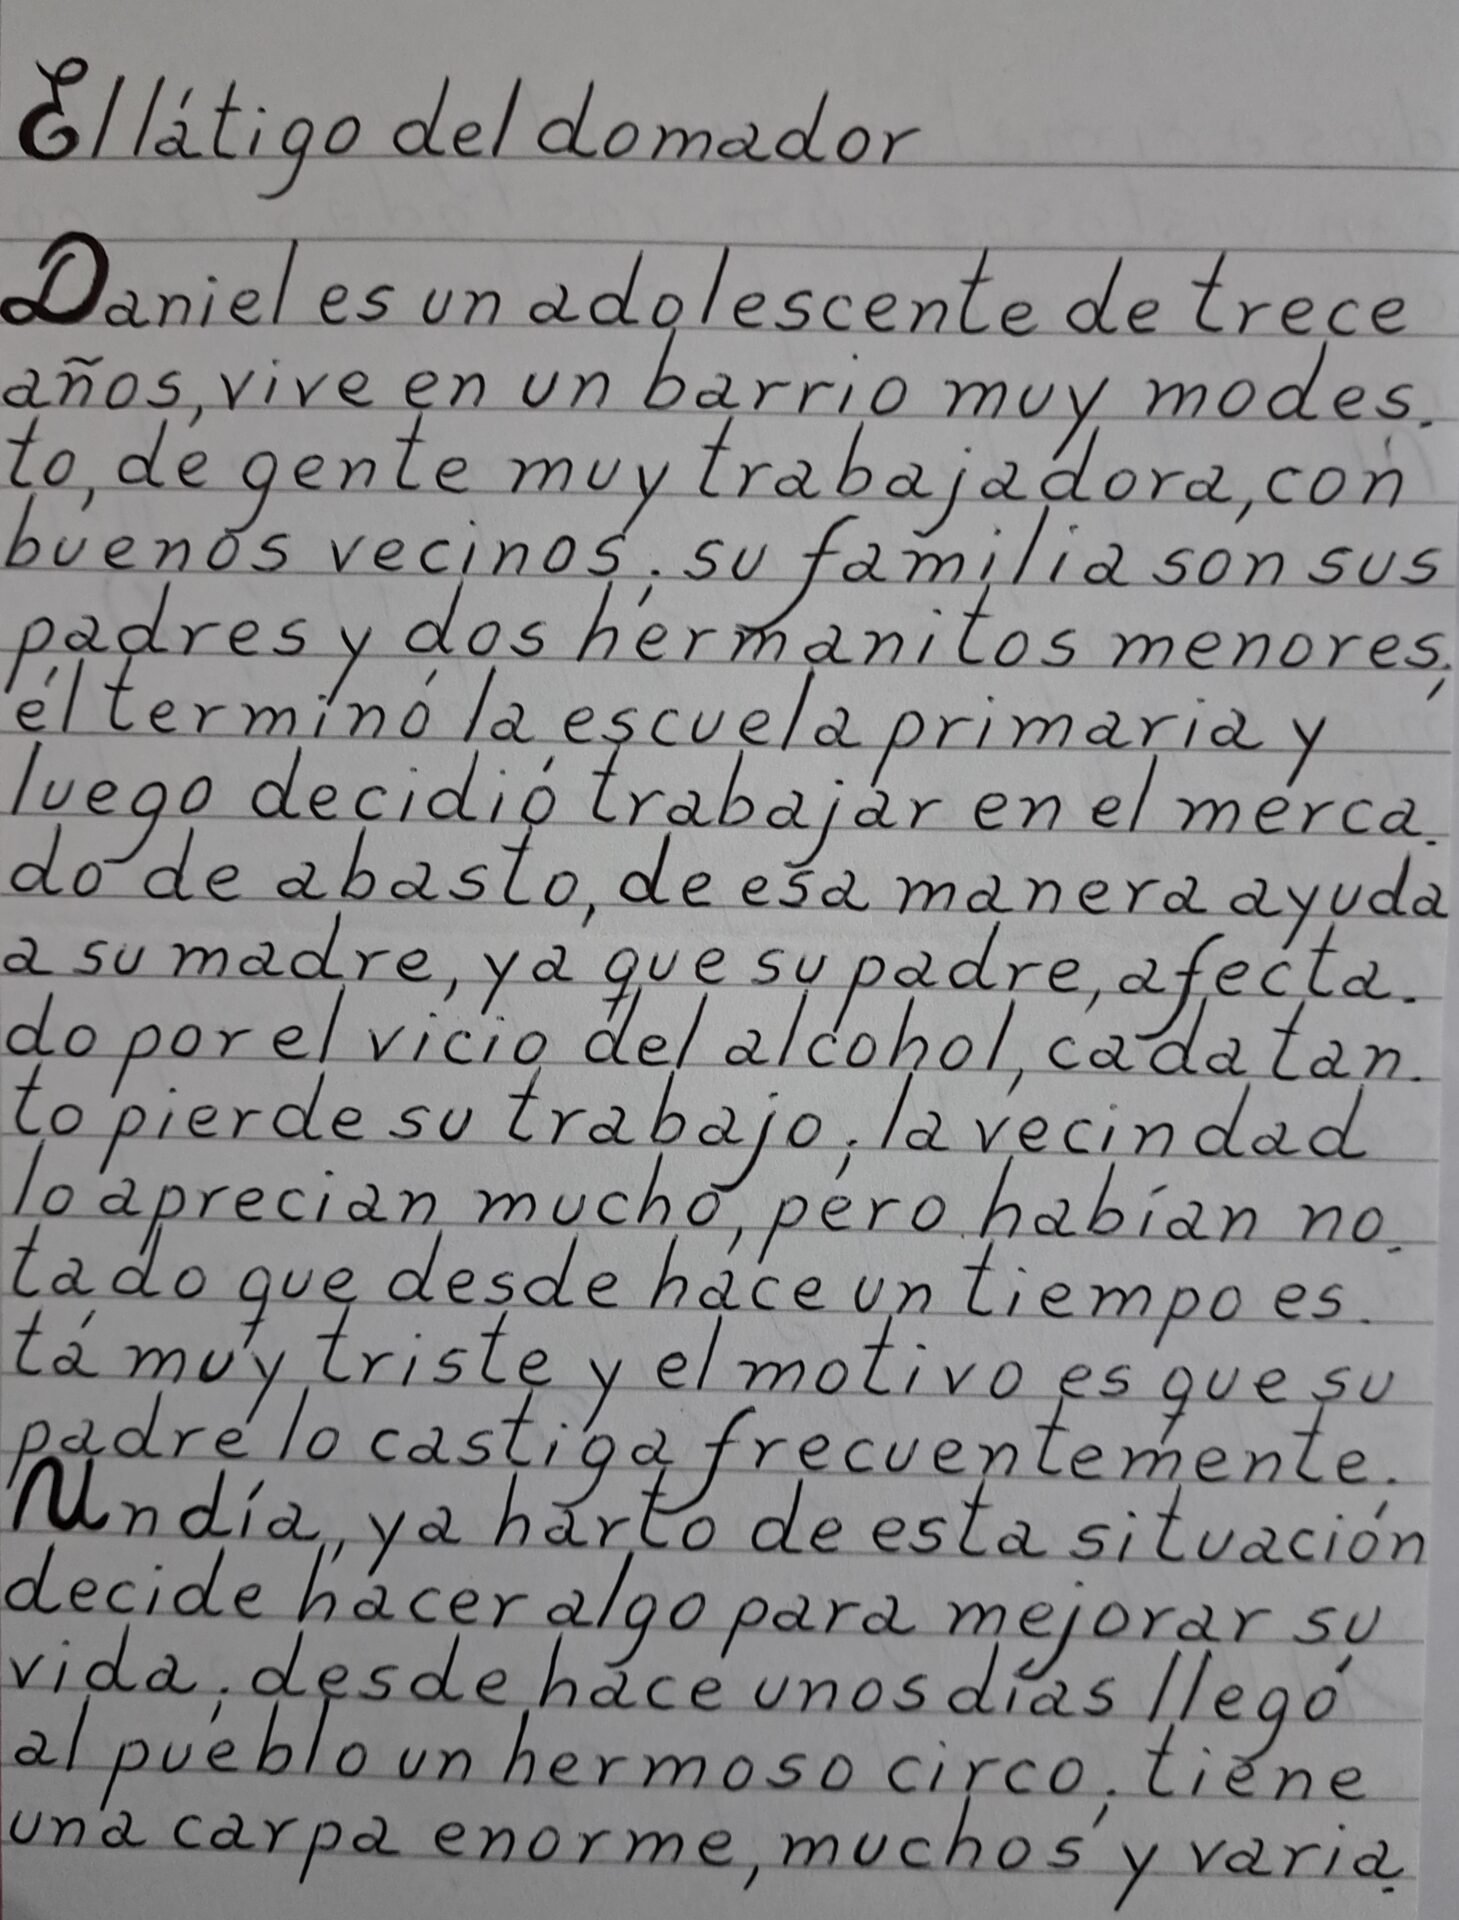 El látigo del domador
Daniel es un adolescente de trece
años, vive en un barrio muy modes.
to, de gente muy trabajadora, con
buenos vecinos; su familia son sus
padres y dos hermanitos menores;
él terminó la escuela primaria y
luego decidió trabajar en el merca.
do de abasto, de esa manera ayuda
a su madre, ya que su padre, afecta.
do por el vicio del alcohol, cada tan.
to pierde su trabajo; la vecindad
lo aprecian mucho, pero habían no.
tado que desde hace un tiempo es.
tá muy triste y el motivo es que su
padre lo castiga frecuentemente.
Un día, ya harto de esta situación
decide hacer algo para mejorar su
vida; desde hace unos días llegó
al pueblo un hermoso circo; tiene
una carpa enorme, muchos y varia.